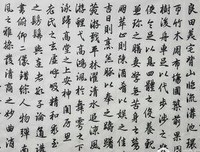 良田美宅背山臨流溝池環
匝竹木周布場圃築前果園
樹後舟車足以代步涉之難
使令足以息四體之役養親有
兼珍之膳妻孥無苦身之勞
良朋萃止則陳酒肴以娛之嘉時
吉日則烹羔豚以奉之躊躇畦
苑遊戲平林濯清水追涼風釣
游鯉弋高鴻風於舞雩之下
詠歸高堂之上安神閨房思
老氏之玄虛呼吸精和求至人
之彷彿與達者數子論道講
書俯仰二儀錯綜人物彈南
風之雅操發清商之妙曲消